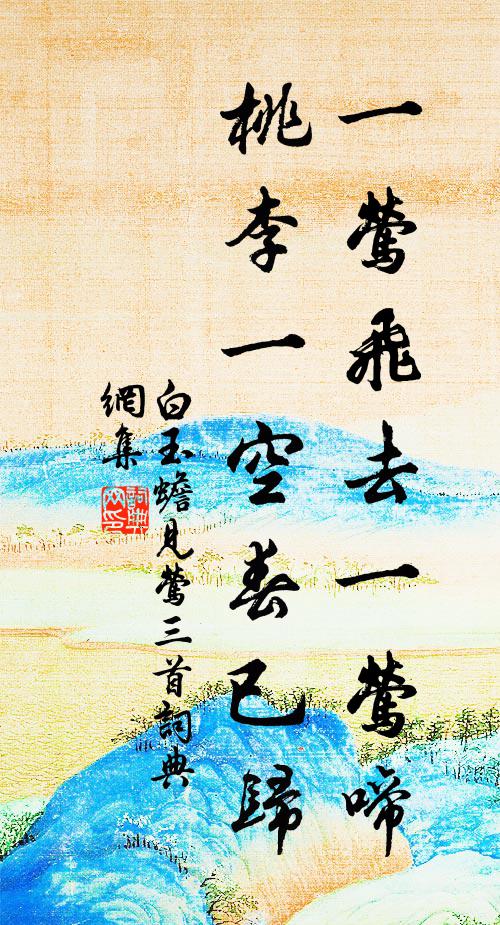 一鶯飛去一鶯啼
桃李一空春已歸
白玉蟾見鶯三首詞典
網集
詞典
网印